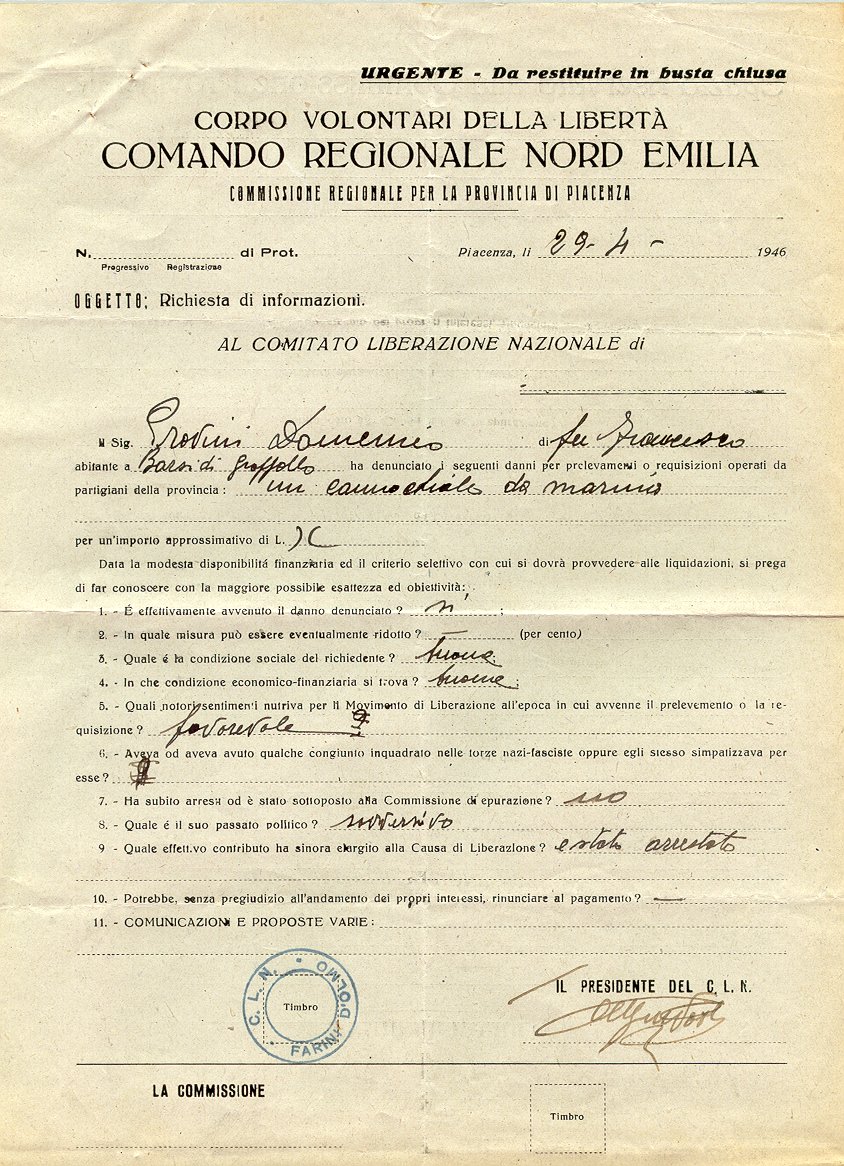 URGENTE - Da restituire in busta chiusa
CORPO VOLONTARI DELLA LIBERTÀ
COMANDO REGIONALE NORD EMILIA
COMMISSIONE REGIONALE PER LA PROVINCIA DI PIACENZA
N. di Prot. Piacenza, li 29-4- 1946
Progressivo Registrazione
OGGETTO: Richiesta di informazioni.
AL COMITATO LIBERAZIONE NAZIONALE di
Il Sig. Domenico di fu Francesco
abitante a di Groppallo ha denunciato i seguenti danni per prelevamenti o requisizioni operati da
partigiani della provincia: un da marina
per un'importo approssimativo di L.
Data la modesta disponibilitá finanziaria ed il criterio selettivo con cui si dovrà provvedere alle liquidazioni, si prega
di far conoscere con la maggiore possibile esattezza ed obiettività:
1. - É effettivamente avvenuto il danno denunciato? si ;
2. - In quale misura può essere eventualmente ridotto? — (per cento)
3. - Quale é la condizione sociale del richiedente? buona
4. - In che condizione economico-finanziaria si trova? buona ;
5. - Quali notori sentimenti nutriva per il Movimento di Liberazione all'epoca in cui avvenne il prelevemento o la re-
quisizione? favorevole
6. - Aveva od aveva avuto qualche congiunto inquadrato nelle forze nazi-fasciste oppure egli stesso simpatizzava per
esse?
7. - Ha subito arresti od è stato sottoposto alla Commissione di epurazione? no
8. - Quale é il suo passato politico? sovversivo
9 - Quale effettivo contributo ha sinora elargito alla Causa di Liberazione? e stato arrestato
10. - Potrebbe, senza pregiudizio all'andamento dei propri interessi, rinunciare al pagamento? —
11. - COMUNICAZIONI E PROPOSTE VARIE:
C. L. N. • FARINI D'OLMO
Timbro
IL PRESIDENTE DEL C. L. N.
LA COMMISSIONE
Timbro